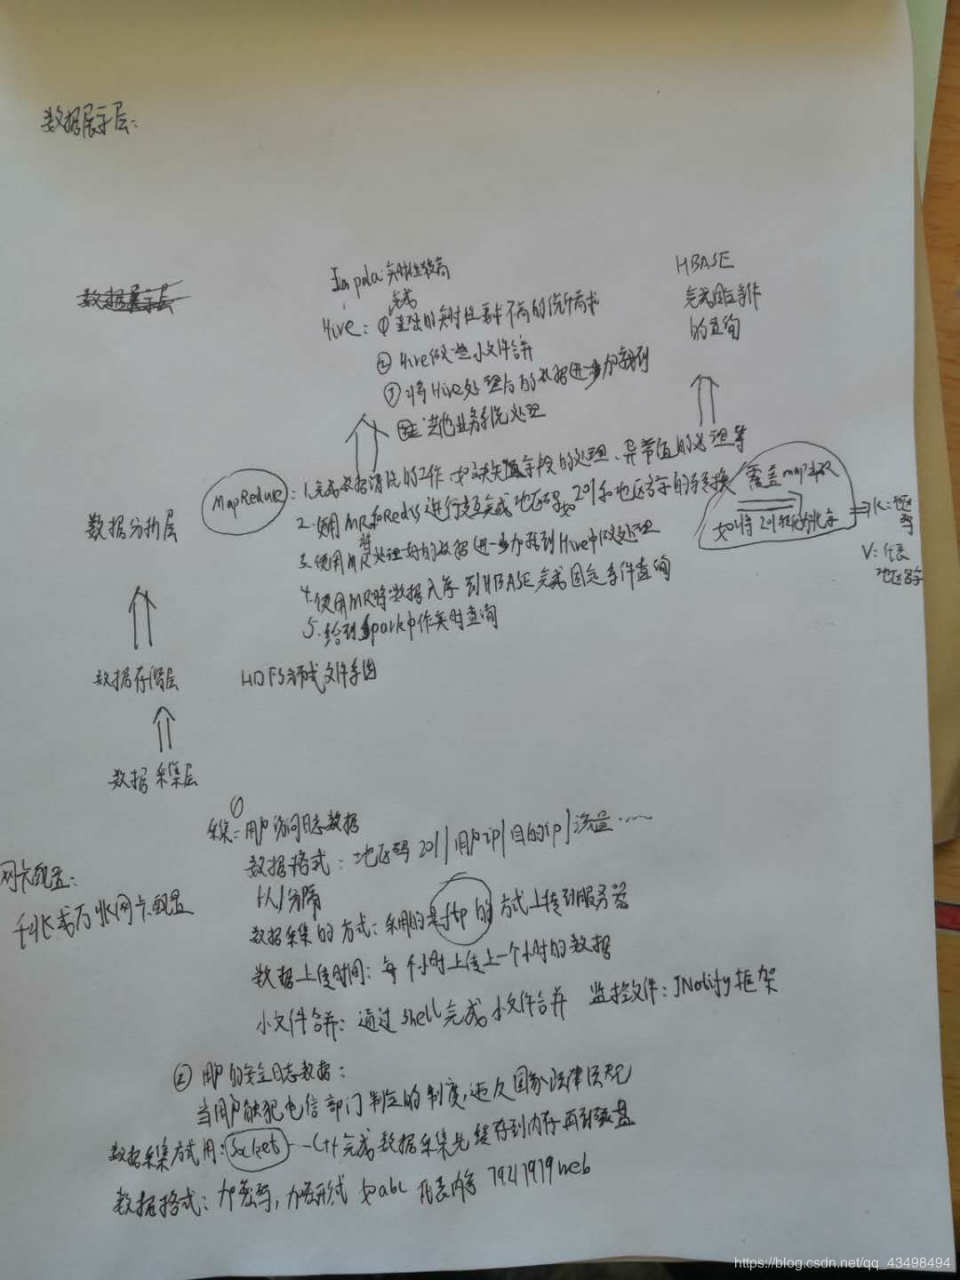 数据展示层:
Impala:实时性较高
HBASE
数据展示层
完成
完成固定条件
的查询
Hive: ① 的实时性要求不高的
② Hive做些小文件合并
③ 将Hive处理后的数据进一步加载到
业务系统处理
MapReduce: 1.完成数据清洗的工作 如缺失字段的处理、异常值的处理等
覆盖map
数据分析层
2.使用MR和Redis进行完成地区码如201和地区名字的转换
如将201
⇒ K:
3.使用MR将处理后的数据进一步加载到Hive中做处理
V:代表
地区名字
4.使用MR将数据入库到HBASE完成固定条件查询
5.给到Spark中作实时查询
数据存储层
HDFS分布式文件系统
数据采集层
①
采集:用户访问日志数据
数据格式:地区码201|用户ip|目的ip|流量……
网卡配置:
千兆或万兆网卡配置
以|分隔
数据采集的方式:采用的是ftp的方式上传到服务器
数据上传时间:每个小时上传上一个小时的数据
小文件合并:通过shell完成小文件合并 监控文件:JNotify框架
② 用户的安全日志数据:
当用户触犯电信部门制定的制度,违反国家法律法规
数据采集方式用:Socket—C++完成数据采集先缓存到内存再到磁盘
数据格式:加密等,加密形式 如abc 代表内容 79217979web
https://blog.csdn.net/qq_43498494